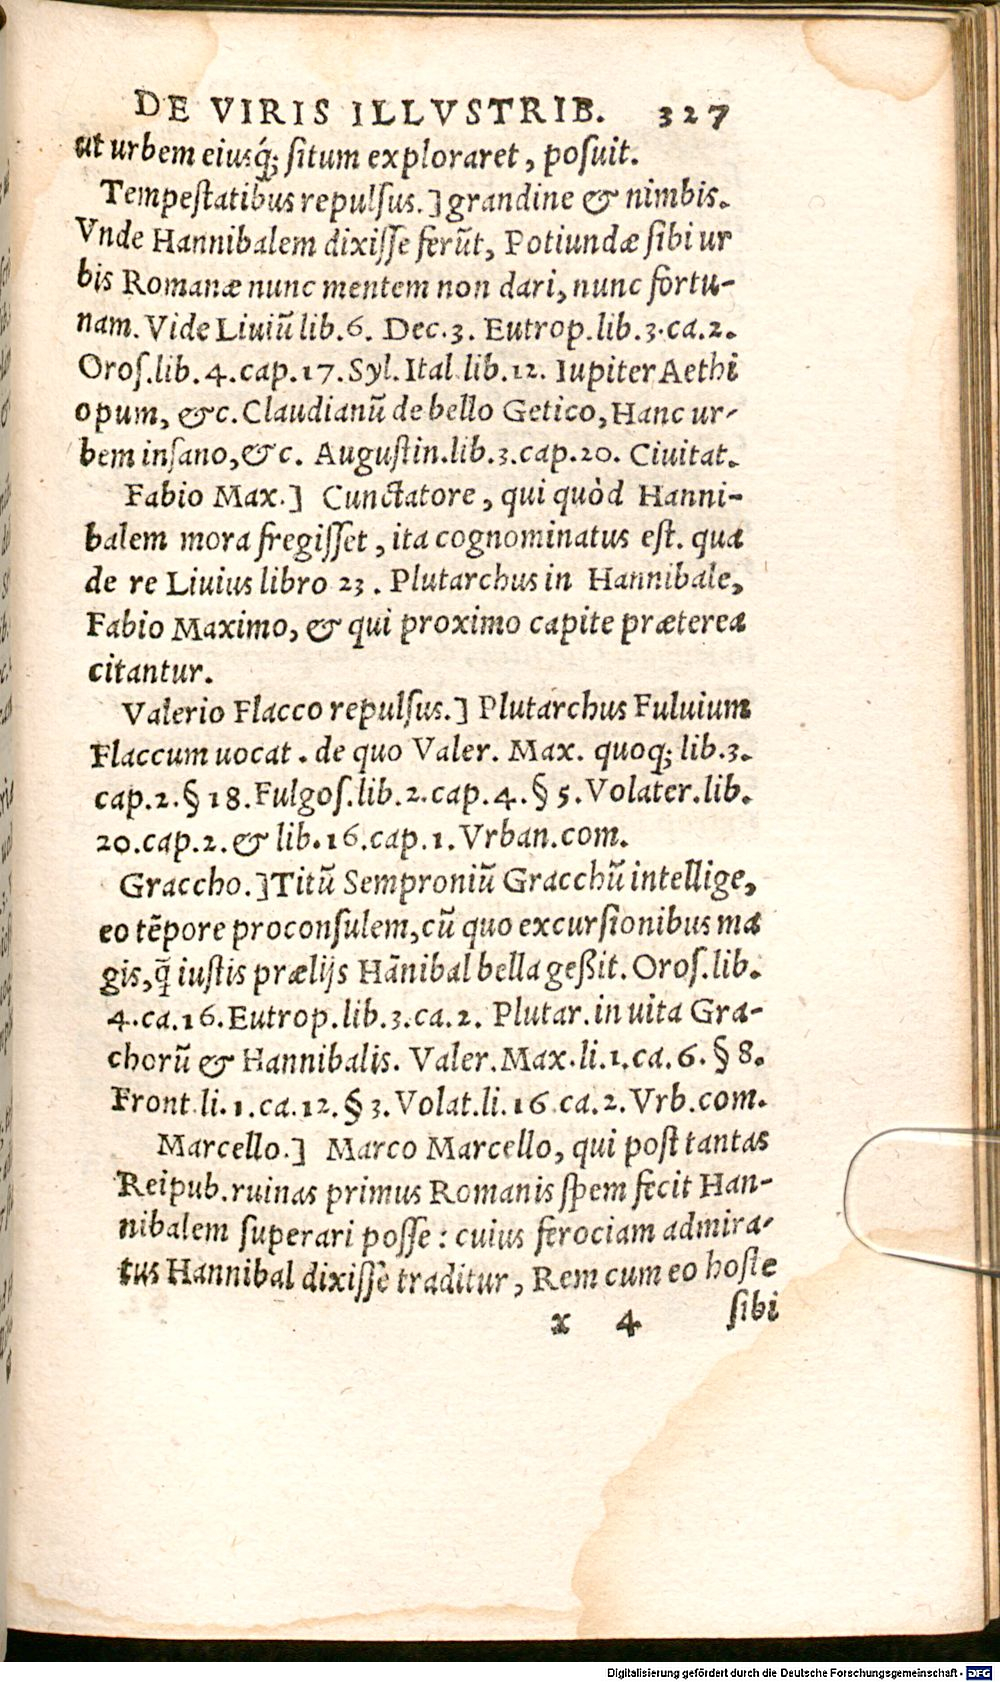 DE VIRIS ILLVSTRIB. 327
ut urbem eiusq́; situm exploraret, posuit.
Tempestatibus repulsus.] grandine & nimbis.
Vnde Hannibalem dixisse ferūt, Potiundæ sibi ur
bis Romanæ nunc mentem non dari, nunc fortu-
nam. Vide Liuiū lib.6. Dec.3. Eutrop.lib.3.ca.2.
Oros.lib.4.cap.17.Syl.Ital lib.12. Iupiter Aethi
opum, &c.Claudianū de bello Getico, Hanc ur-
bem insano,&c. Augustin.lib.3.cap.20. Ciuitat.
Fabio Max.] Cunctatore, qui quòd Hanni-
balem mora fregisset, ita cognominatus est. qua
de re Liuius libro 23. Plutarchus in Hannibale,
Fabio Maximo, & qui proximo capite præterea
citantur.
Valerio Flacco repulsus.] Plutarchus Fuluium
Flaccum uocat. de quo Valer. Max. quoq; lib.3.
cap.2.§ 18.Fulgos.lib.2.cap.4.§ 5.Volater.lib.
20.cap.2.& lib.16.cap.1.Vrban.com.
Graccho.] Titū Semproniū Gracchū intellige,
eo tēpore proconsulem, cū quo excursionibus ma
gis, q̄ iustis prælijs Hānibal bella geßit. Oros.lib.
4.ca.16.Eutrop.lib.3.ca.2. Plutar.in uita Gra-
chorū & Hannibalis. Valer.Max.li.1.ca.6.§ 8.
Front.li.1.ca.12.§ 3.Volat.li.16 ca.2.Vrb.com.
Marcello.] Marco Marcello, qui post tantas
Reipub.ruinas primus Romanis spem fecit Han-
nibalem superari posse: cuius ferociam admira-
tus Hannibal dixisse traditur, Rem cum eo hoste
x 4 sibi
Digitalisierung gefördert durch die Deutsche Forschungsgemeinschaft - DFG